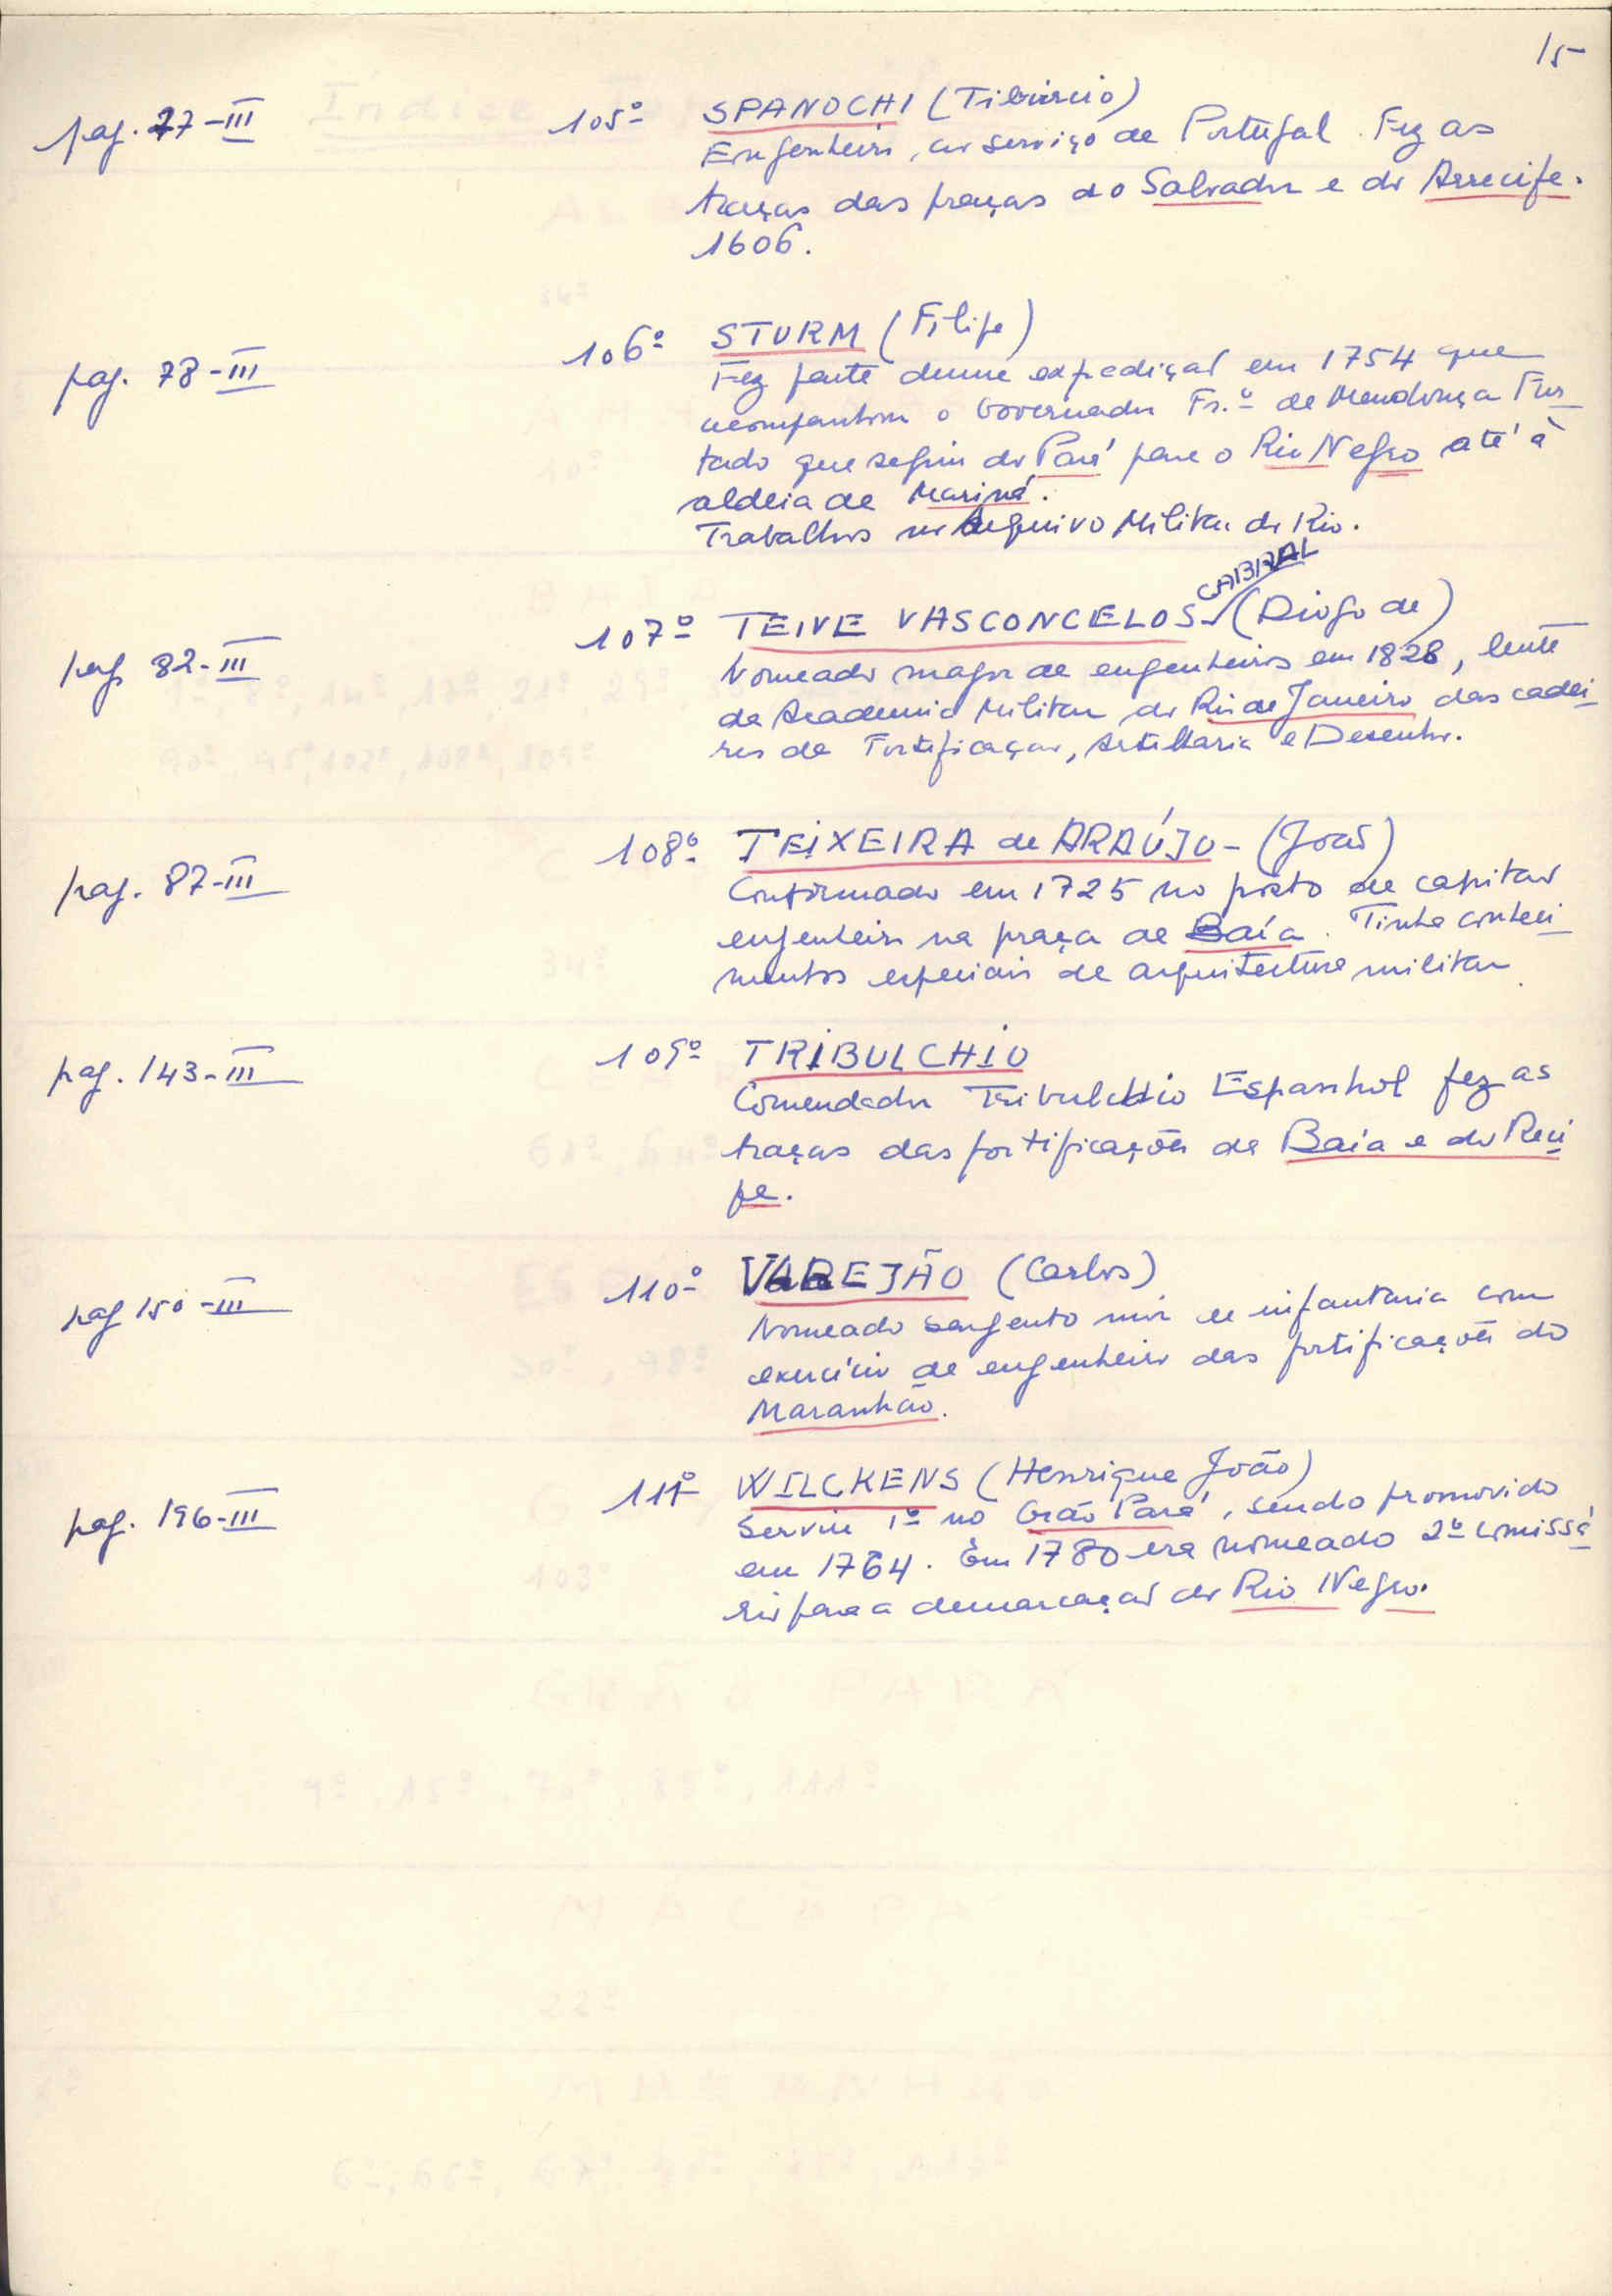 15
pag. 77-III
105º SPANOCHI (Tibúrcio)
Engenheiro, ao serviço de Portugal. Fez as
traças das praças do Salvador e do Arrecife.
1606.
pag. 78-III
106º STURM (Filipe)
Fez parte duma expedição em 1754 que
acompanhou o Governador Fr.º de Mendonça Fur
tado que seguiu do Pará para o Rio Negro até à
aldeia de Mariná.
Trabalhos no Arquivo Militar do Rio.
pag. 82-III
CABRAL
107º TEIVE VASCONCELOS (Diogo de)
Nomeado major de engenheiros em 1828, lente
da Academia Militar do Rio de Janeiro das cadei
ras de Fortificação, Artilharia e Desenho.
pag. 87-III
108º TEIXEIRA de ARAÚJO - (João)
Confirmado em 1725 no posto de capitão
engenheiro na praça da Baía. Tinha conheci
mentos especiais de arquitectura militar.
pag. 143-III
109º TRIBULCHIO
Comendador Tribulchio Espanhol fez as
traças das fortificações da Baía e do Reci
fe.
pag 150-III
110º VAREJÃO (Carlos)
Nomeado sargento mór de infantaria com
exercício de engenheiro das fortificações do
Maranhão.
pag. 196-III
111º WILCKENS (Henrique João)
Serviu 1º no Grão Pará, sendo promovido
em 1764. Em 1780 era nomeado 2º comissá
rio para a demarcação do Rio Negro.